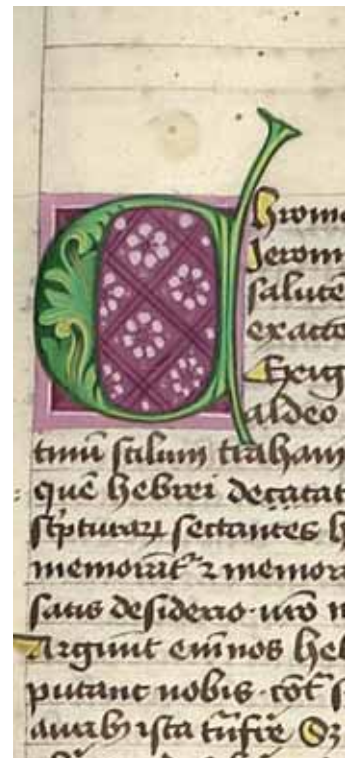 C hroma
Jeromi
salutē
exacto
Exig
aldeo
tinū stilum traham
quē hebrei de catat
sc̄pturaꝝ sectantes h
memorāt ⁊ memor
satis desiderio · uro n
Arguūt em̄ nos heb
putant nobis · cōt s
auribꝫ ista